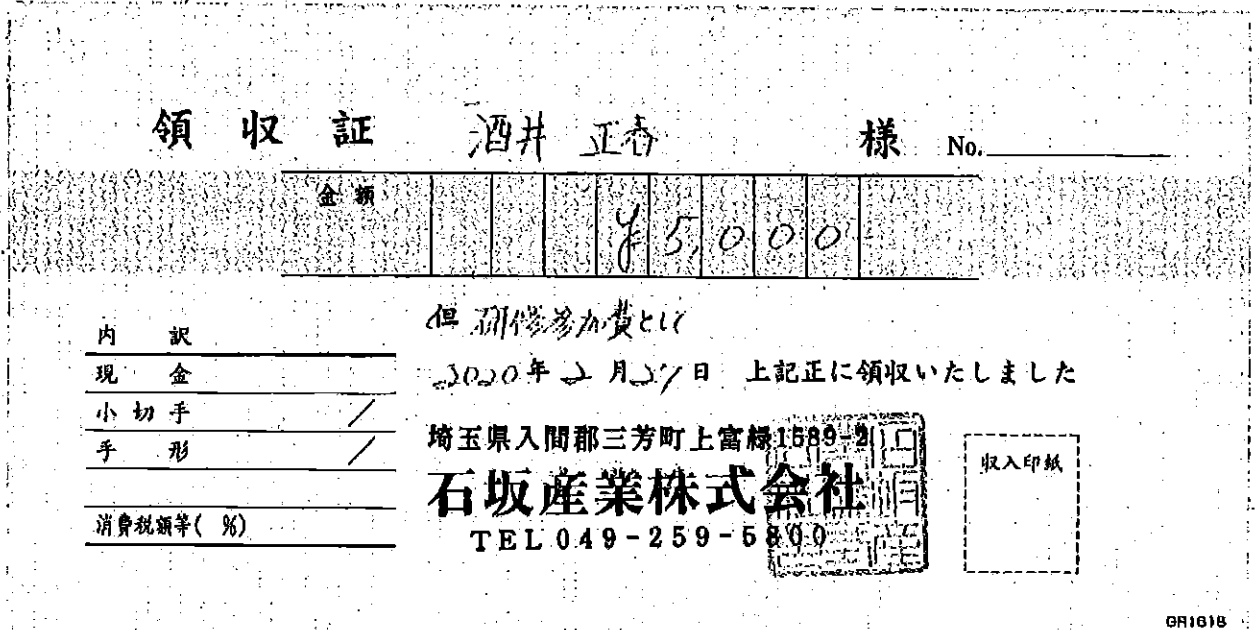 領収証 酒井 正春 様 No.
金額 ¥5,000
但 研修参加費として
2020年2月27日 上記正に領収いたしました
内訳
現金
小切手 /
手形 /
消費税額等( %)
埼玉県入間郡三芳町上富緑1589-2
石坂産業株式会社
TEL 049-259-5800
収入印紙
GR1618